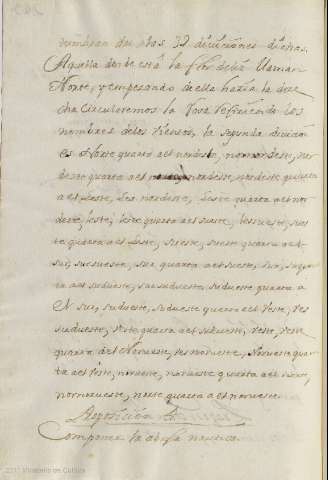 nombran de los 32 divisiones dichas.
Aquella donde está la flor de lis llaman
Norte, y empesando de ella hazia la dere
cha circularemos la Rosa refiriendo los
nombres de los vientos, la segunda division
es Norte quarta al nordeste, nornordeste, nor
deste quarta al nordeste, nordeste quarta
a el Leste, Les nordeste, Leste quarta al nor
deste, Leste, Leste quarta al sueste, Lesueste, sues
te quarta al Leste, sueste, sueste quarta al
sur, sursueste, sur quarta al sueste, sur, sur quar
ta al sudueste, sur sudueste, sudueste quarta a
el sur, sudueste, sudueste quarta al Veste, Ves
sudueste, Veste quarta al sudueste, Veste, Veste
quarta al Norueste, Vesnorueste, Norueste quar
ta al Veste, norueste, norueste quarta al norte,
nornorueste, norte quarta al norueste.
Componen la abuja nautica
Ministerio de Cultura